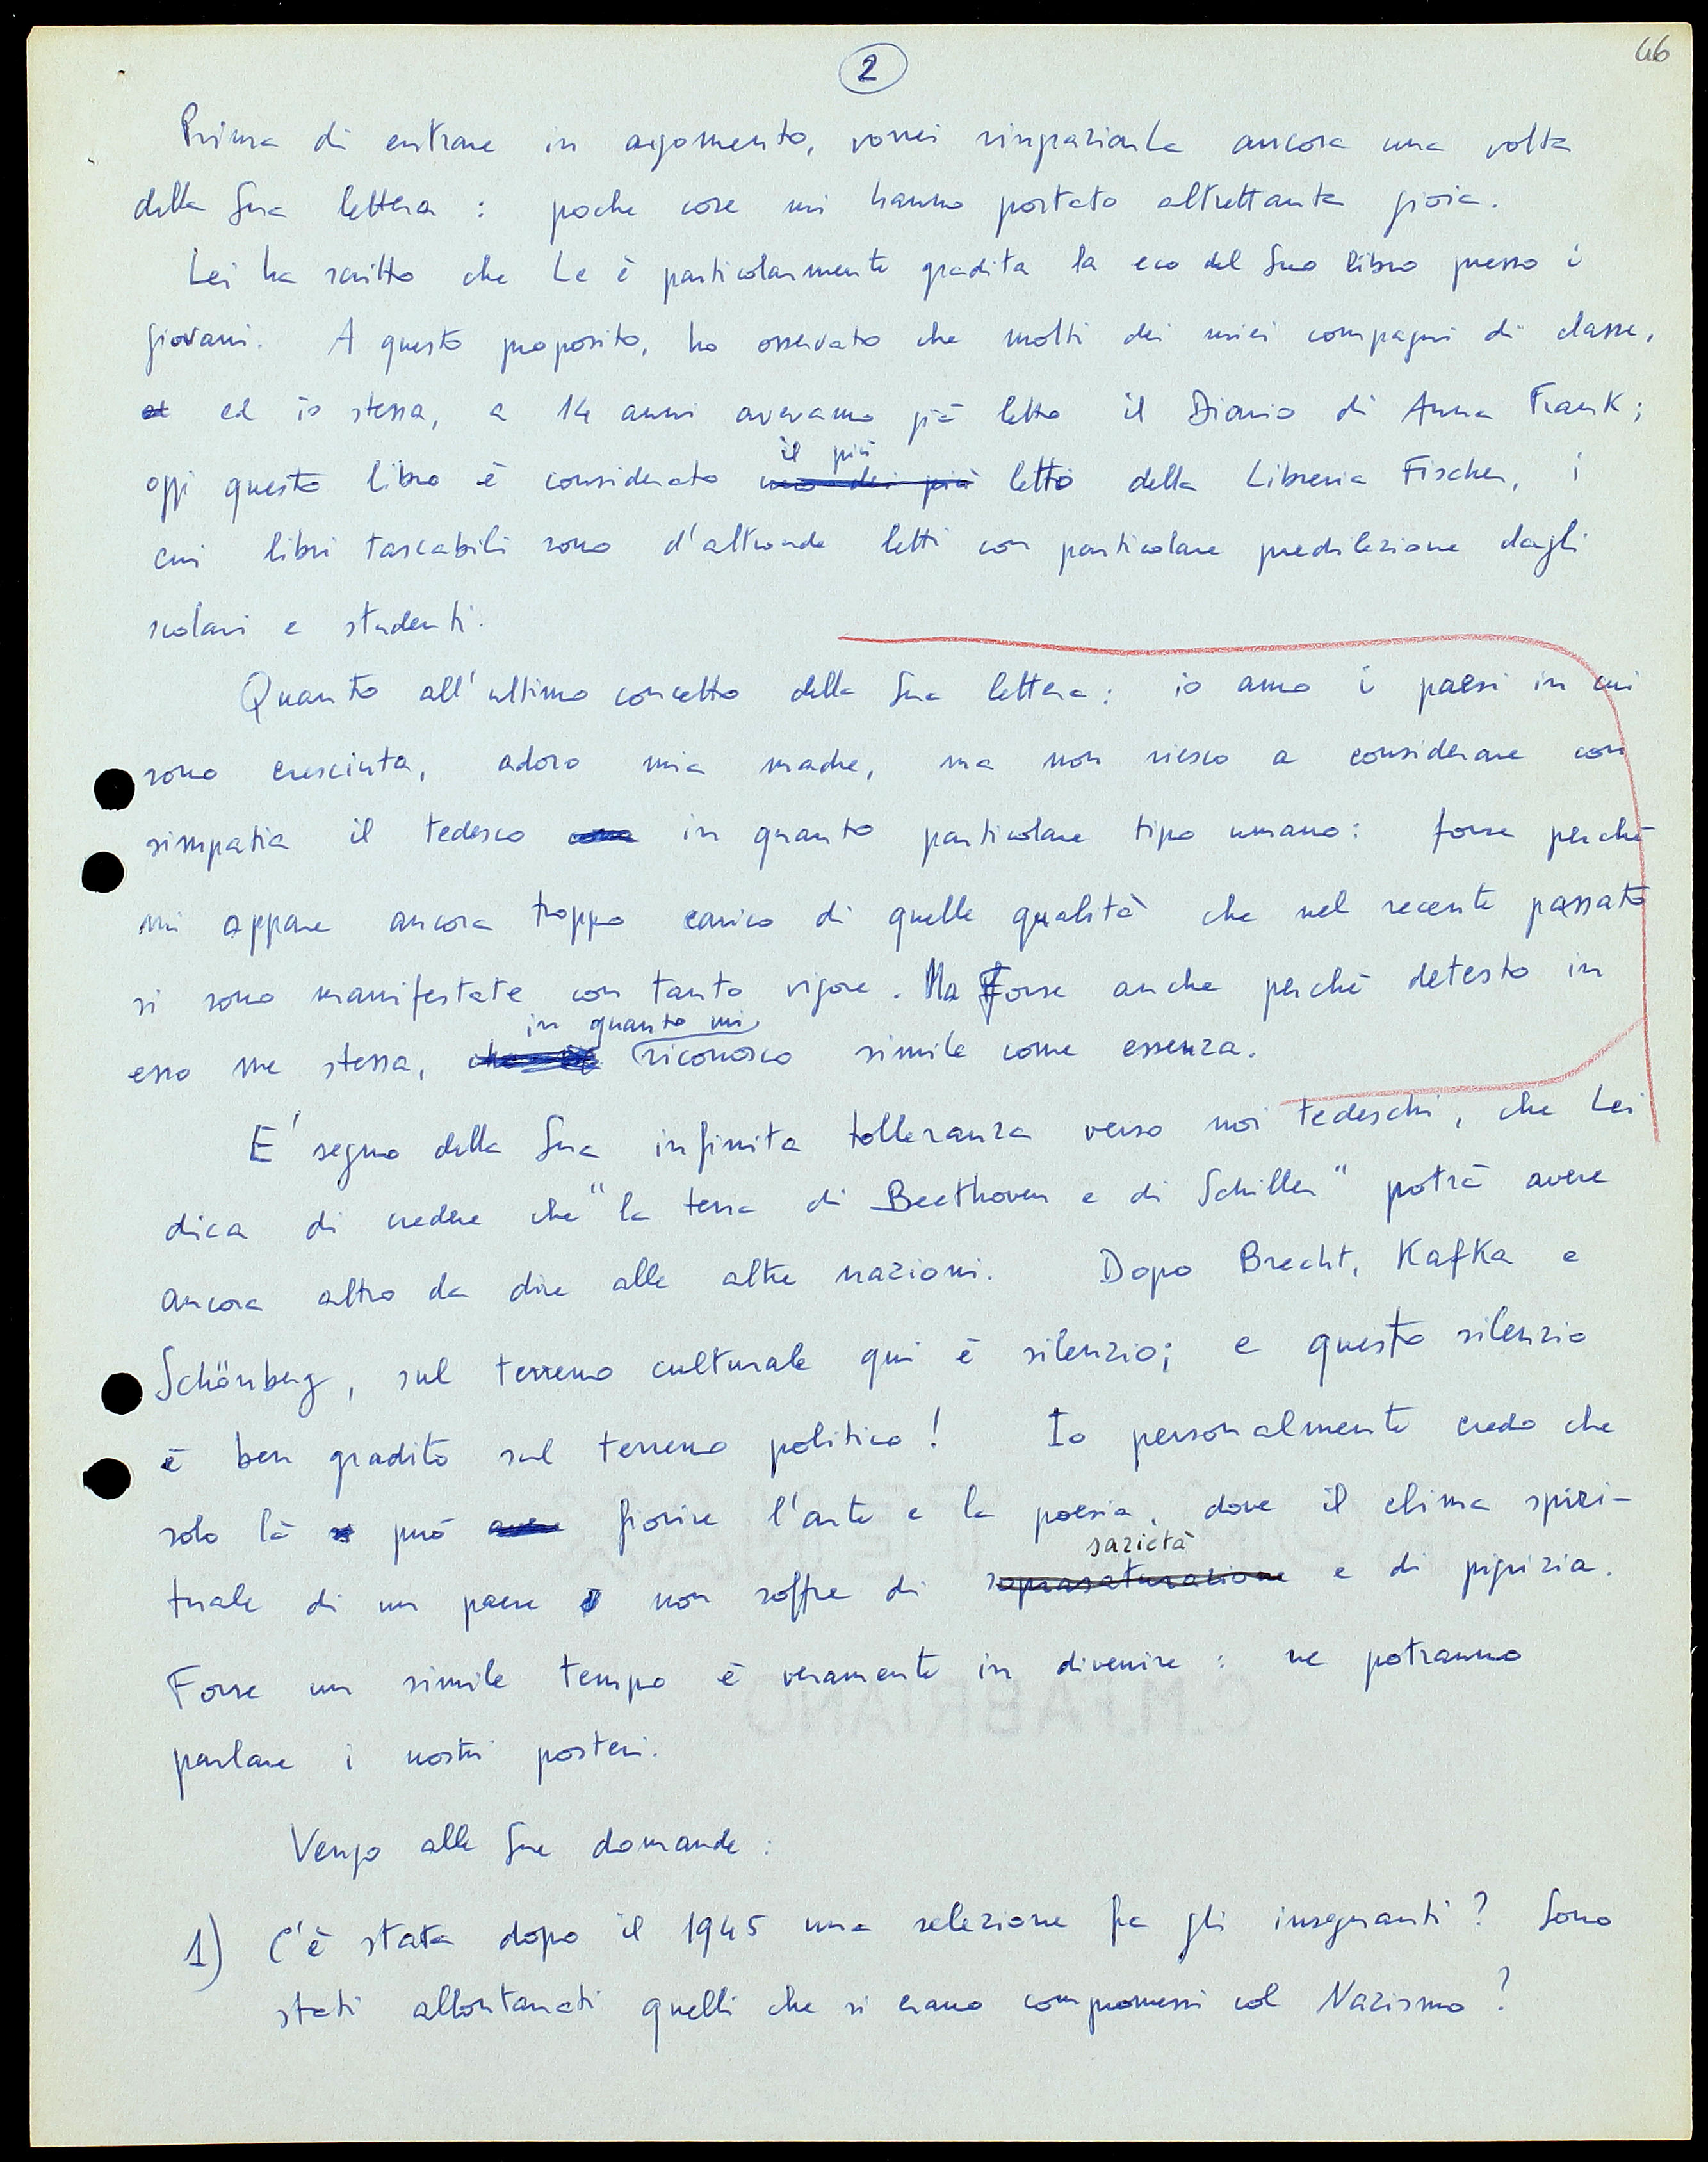 2
46
Prima di entrare in argomento, vorrei ringraziarLa ancora una volta
della Sua lettera : poche cose mi hanno portato altrettanta gioia.
Lei ha scritto che Le è particolarmente gradita la eco del Suo libro presso i
giovani. A questo proposito, ho osservato che molti dei miei compagni di classe,
ed io stessa, a 14 anni avevamo già letto il Diario di Anna Frank;
il più
oggi questo libro è considerato uno dei più letto della Libreria Fischer, i
cui libri tascabili sono d'altronde letti con particolare predilezione dagli
scolari e studenti.
Quanto all'ultimo concetto della Sua lettera: io amo i paesi in cui
sono cresciuta, adoro mia madre, ma non riesco a considerare con
simpatia il tedesco come in quanto particolare tipo umano: forse perché
mi appare ancora troppo carico di quelle qualità che nel recente passato
si sono manifestate con tanto vigore. Ma forse anche perché detesto in
in quanto mi
esso me stessa, riconosco simile come essenza.
E' segno della Sua infinita tolleranza verso noi tedeschi, che Lei
dica di credere che "la terra di Beethoven e di Schiller" potrà avere
ancora altro da dire alle altre nazioni. Dopo Brecht, Kafka e
Schönberg, sul terreno culturale qui è silenzio; e questo silenzio
è ben gradito sul terreno politico! Io personalmente credo che
solo là può avere fiorire l'arte e la poesia, dove il clima spiri-
sazietà
tuale di un paese non soffre di soprasaturazione e di pigrizia.
Forse un simile tempo è veramente in divenire : ne potranno
parlare i nostri posteri.
Vengo alle Sue domande :
1) C'è stata dopo il 1945 una selezione fra gli insegnanti? Sono
stati allontanati quelli che si erano compromessi col Nazismo?
C.M.FABRIANO